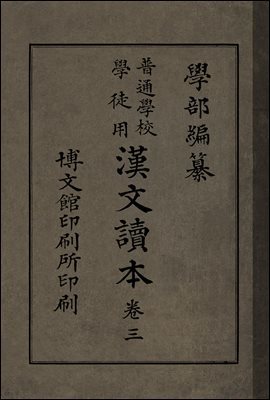 學部編纂
普通學校
學徒用
漢文讀本 卷三
博文館印刷所印刷